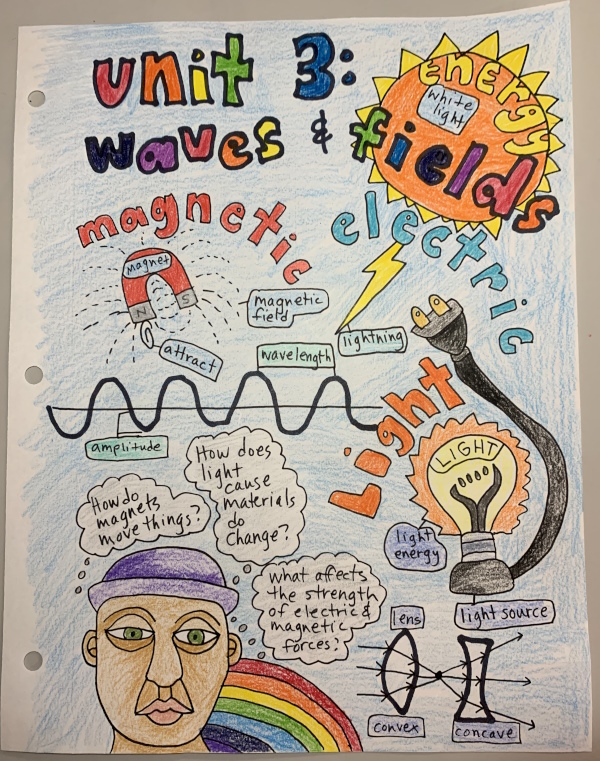 unit 3:
waves & fields
energy
white
light
magnetic
electric
magnet
N S
magnetic
field
attract
lightning
wavelength
amplitude
Light
LIGHT
How does
light
cause
materials
do
change?
How do
magnets
move things?
light
energy
what affects
the strength
of electric &
magnetic
forces?
lens
light source
convex
concave